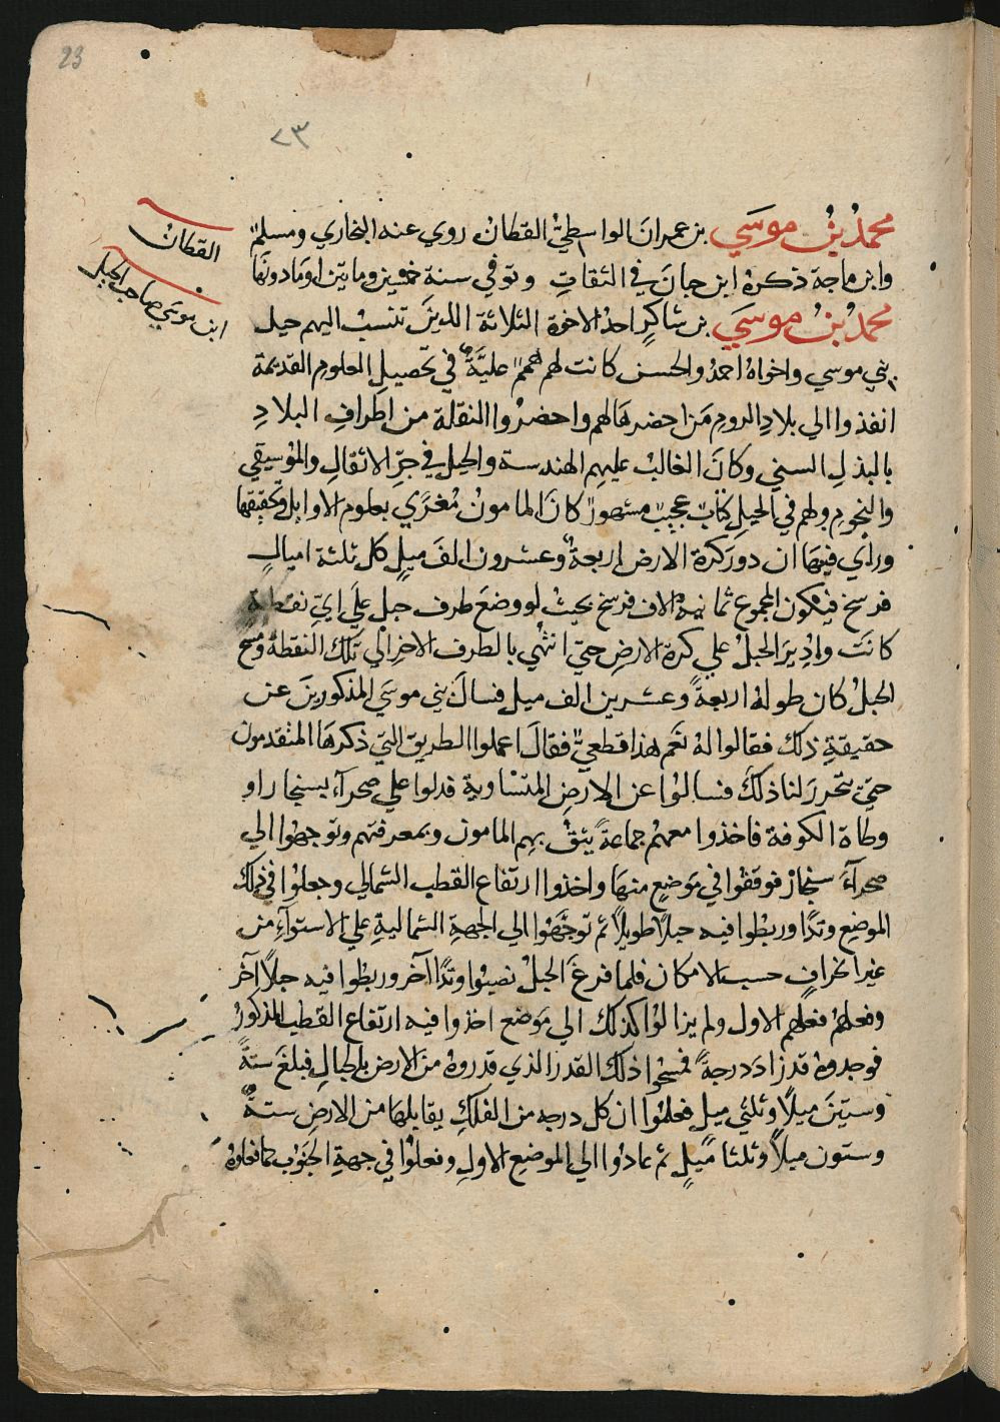 23
٢٣
محمد بن موسى بن عمران الواسطي القطان روي عنه البخاري ومسلم
القطان
وابن ماجة ذكره ابن حبان في الثقات وتوفي سنة خمسين وماتين او ما دونها
ابن موسي صاحب الحيل
محمد بن موسى بن شاكر احد الاخوة الثلاثة الذين تنسب اليهم حيل
بني موسي واخواه احمد والحسن كانت لهم همم علية في تحصيل العلوم القديمة
انفذوا الي بلاد الروم من احضرها لهم واحضروا النقلة من اطراف البلاد
بالبذل السني وكان الغالب عليهم الهندسة والحيل في جر الاثقال والموسيقي
والنجوم ولهم في الحيل كتاب عجيب مشهور كان المامون مغري بعلوم الاوايل وتحقيقها
وراي فيها ان دور كرة الارض اربعة وعشرون الف ميل كل ثلثة اميال
فرسخ فيكون المجموع ثمانية الاف فرسخ بحيث لو وضع طرف حبل علي اي نقطة
كانت وادير الحبل علي كرة الارض حتي انتهي بالطرف الاخر الي تلك النقطة ومسح
الحبل كان طوله اربعة وعشرين الف ميل فسال بني موسي المذكورين عن
حقيقة ذلك فقالوا له نعم هذا قطعي فقال اعملوا الطريق التي ذكرها المتقدمون
حتي تحرر لنا ذلك فسالوا عن الارض المتساوية فدلوا علي صحراء بسنجار او
وطاة الكوفة فاخذوا معهم جماعة يثق بهم المامون وبمعرفتهم وتوجهوا الي
صحراء سنجار فوقفوا في موضع منها واخذوا ارتفاع القطب الشمالي وجعلوا في ذلك
الموضع وتدا وربطوا فيه حبلا طويلا ثم توجهوا الي الجهة الشمالية علي الاستواء من
غير انحراف حسب الامكان فلما فرغ الحبل نصبوا وتدا آخر وربطوا فيه حبلا آخر
وفعلهم فعلهم الاول ولم يزالوا كذلك الي موضع اخذوا فيه ارتفاع القطب المذكور
فوجدوه قد زاد درجة فمسحوا ذلك القدر الذي قدروه من الارض بالحبال فبلغ ستة
وستين ميلا وثلثي ميل فعلموا ان كل درجه من الفلك يقابلها من الارض ستة
وستون ميلا وثلثا ميل ثم عادوا الي الموضع الاول وفعلوا في جهة الجنوب كما فعلوه